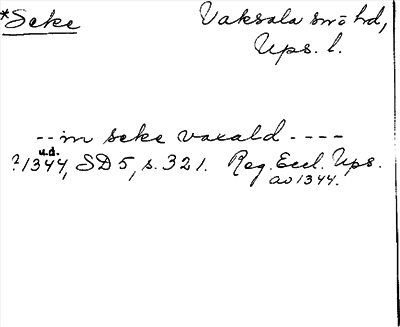 *Seke
Vaksala sn o hd,
Ups. l.
-- in seke vaxald ----
u.d.
?1344, SD 5, s. 321. Reg. Eccl. Ups.
av 1344.